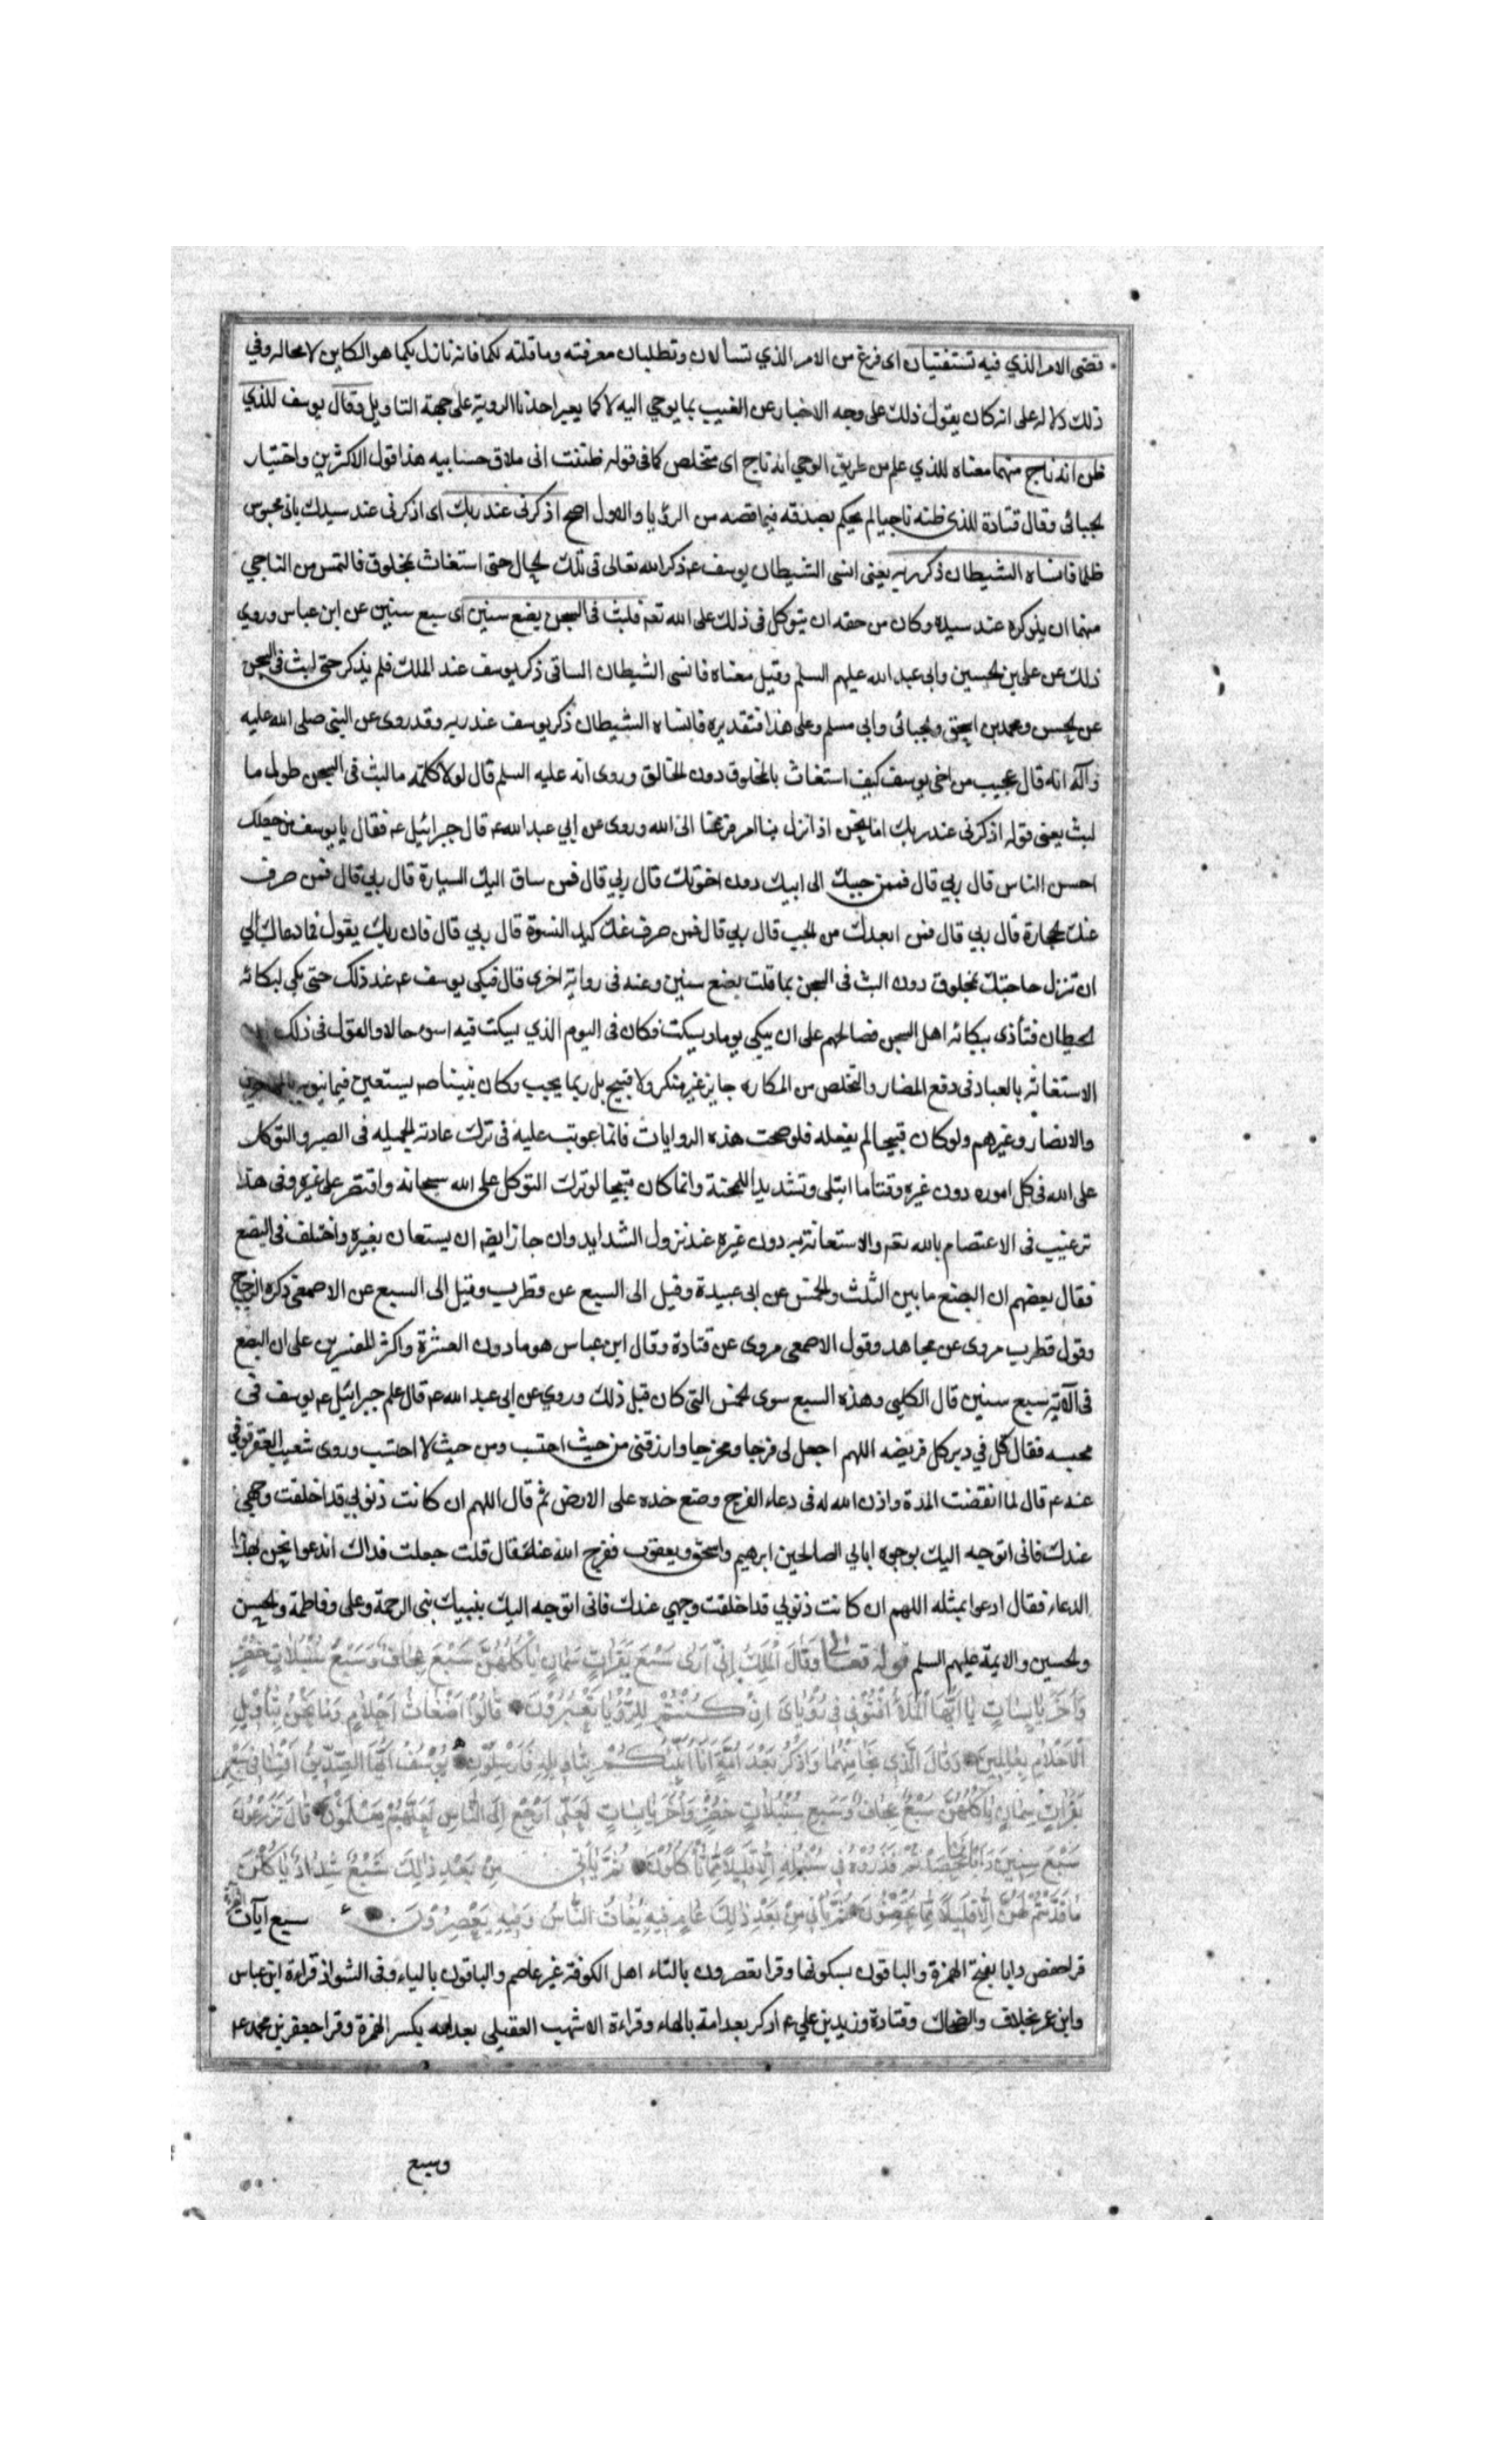 قضى الامر الذي فيه تستفتيان اى فرغ من الامر الذي تسألان وتطلبان معرفته وما قلته لكما فانه نازل بكما هو الكاين لا محاله وفي
ذلك دلاله على انه كان يقول ذلك على وجه الاخبار عن الغيب بما يوحي اليه لا كما يعبر احدنا الروية على جهة التاويل وقال يوسف للذي
ظن انه ناج منهما معناه للذي علم من طريق الوحي انه ناج اى متخلص كما فى قوله ظننت انى ملاق حسابيه هذا قول الاكثرين واختيار
الجبائى وقال قتادة للذى ظنه ناجيا لم يحكم بصدقه فيما قصه من الرؤيا والاول اصح اذكرنى عند ربك اى اذكرنى عند سيدك بانى محبوس
ظلما فانساه الشيطان ذكر ربه يعنى انسى الشيطان يوسف ع ذكر الله تعالى فى تلك الحال حتى استغاث بمخلوق فالتمس من الناجي
منهما ان يذكره عند سيده وكان من حقه ان يتوكل فى ذلك على الله تعه فلبث فى السجن بضع سنين اى سبع سنين عن ابن عباس وروي
ذلك عن على بن الحسين وابى عبد الله عليهم السلم وقيل معناه فانسى الشيطان الساقى ذكر يوسف عند الملك فلم يذكر حتى لبث فى السجن
عن الحسن ومحمد بن اسحق والجبائى وابى مسلم وعلى هذا فتقديره فانساه الشيطان ذكر يوسف عند ربه وقد روى عن النبى صلى الله عليه
وآله انه قال عجيب من اخى يوسف كيف استغاث بالمخلوق دون الخالق وروى انه عليه السلم قال لولا كلمته ما لبث فى السجن طول ما
لبث يعنى قوله اذكرنى عند ربك اذا نزل بنا امر فزعنا الى الله وروى عن ابي عبد الله ع قال جبرائيل ع فقال يا يوسف من جعلك
احسن الناس قال ربي قال فمن حببك الى ابيك دون اخوتك قال ربي قال فمن ساق اليك السيارة قال ربي قال فمن صرف
عنك الحجارة قال ربي قال فمن انقذك من الجب قال ربي قال فمن صرف عنك كيد النسوة قال ربي قال فان ربك يقول فما دعاك الي
ان تنزل حاجتك بمخلوق دون البث فى السجن بما قلت بضع سنين وعنه فى رواية اخرى قال فبكى يوسف ع عند ذلك حتى بكى لبكائه
الحيطان فتأذى ببكائه اهل السجن فصالحهم على ان يبكى يوما ويسكت فكان فى اليوم الذي يسكت فيه اسوء حالا والقول فى ذلك
الاستغاثه بالعباد فى دفع المضار والتخلص من المكاره جايز غير منكر ولا قبيح بل ربما يجب وكان نبينا صه يستعين فيما ينوبه
والانصار وغيرهم ولو كان قبيحا لم يفعله فلو صحت هذه الروايات فانما عوتب عليه فى ترك عادته الجميله فى الصبر والتوكل
على الله فى كل اموره دون غيره وقتا ما ابتلى وتشديدا للمحنة وانما كان قبيحا لو ترك التوكل على الله سبحانه واقتصر على غيره وفى هذا
ترغيب فى الاعتصام بالله تعه والاستعانة به دون غيره عند نزول الشدايد وان جاز ايضه ان يستعان بغيره واختلف فى البضع
فقال بعضهم ان البضع ما بين الثلث والخمس عن ابى عبيدة وقيل الى السبع عن قطرب وقيل الى السبع عن الاصمعى ذكره الزجاج
وقول قطرب مروى عن مجاهد وقول الاصمعى مروى عن قتادة وقال ابن عباس هو ما دون العشرة واكثر المفسرين على ان البضع
فى الآية سبع سنين قال الكلبى وهذه السبع سوى الخمس التى كان قبل ذلك وروي عن ابى عبد الله ع قال علم جبرائيل ع يوسف فى
محبسه فقال قل في دبر كل فريضه اللهم اجعل لى فرجا ومخرجا وارزقنى من حيث احتسب ومن حيث لا احتسب وروى شعيب العقرقوفى
عنه ع قال لما انقضت المدة واذن الله له فى دعاء الفرج وضع خده على الارض ثم قال اللهم ان كانت ذنوبي قد اخلقت وجهي
عندك فانى اتوجه اليك بوجوه ابائي الصالحين ابرهيم واسحق ويعقوب ففرج الله عنه قال قلت جعلت فداك اندعوا نحن بهذا
الدعاء فقال ادعوا بمثله اللهم ان كانت ذنوبي قد اخلقت وجهي عندك فانى اتوجه اليك بنبيك نبى الرحمة وعلى وفاطمة والحسن
والحسين والايمة عليهم السلم قوله تعالى وَقَالَ الْمَلِكُ اِنِّى اَرٰى سَبْعَ بَقَرَاتٍ سِمَانٍ يَاْكُلُهُنَّ سَبْعٌ عِجَافٌ وَسَبْعَ سُنْبُلَاتٍ خُضْرٍ
وَاُخَرَ يَابِسَاتٍ يَا اَيُّهَا الْمَلَاُ اَفْتُوْنِى فِى رُؤْيَاىَ اِنْ كُنْتُمْ لِلرُّؤْيَا تَعْبُرُوْنَ قَالُوْا اَضْغَاثُ اَحْلَامٍ وَمَا نَحْنُ بِتَاْوِيْلِ
الْاَحْلَامِ بِعَالِمِيْنَ وَقَالَ الَّذِى نَجَا مِنْهُمَا وَادَّكَرَ بَعْدَ اُمَّةٍ اَنَا اُنَبِّئُكُمْ بِتَاْوِيْلِهِ فَاَرْسِلُوْنِ يُوْسُفُ اَيُّهَا الصِّدِّيْقُ اَفْتِنَا فِى سَبْعِ
بَقَرَاتٍ سِمَانٍ يَاْكُلُهُنَّ سَبْعٌ عِجَافٌ وَسَبْعِ سُنْبُلَاتٍ خُضْرٍ وَاُخَرَ يَابِسَاتٍ لَعَلِّى اَرْجِعُ اِلَى النَّاسِ لَعَلَّهُمْ يَعْلَمُوْنَ قَالَ تَزْرَعُوْنَ
سَبْعَ سِنِيْنَ دَاَبًا فَمَا حَصَدْتُمْ فَذَرُوْهُ فِى سُنْبُلِهِ اِلَّا قَلِيْلًا مِمَّا تَاْكُلُوْنَ ثُمَّ يَاْتِى مِنْ بَعْدِ ذٰلِكَ سَبْعٌ شِدَادٌ يَاْكُلْنَ
مَا قَدَّمْتُمْ لَهُنَّ اِلَّا قَلِيْلًا مِمَّا تُحْصِنُوْنَ ثُمَّ يَاْتِى مِنْ بَعْدِ ذٰلِكَ عَامٌ فِيْهِ يُغَاثُ النَّاسُ وَفِيْهِ يَعْصِرُوْنَ سبع آيات القراءة
قرا حفص دابا بفتح الهمزة والباقون بسكونها وقرا تعصرون بالتاء اهل الكوفة غير عاصم والباقون بالياء وفى الشواذ قراءة ابن عباس
وابن عمر بخلاف والضحاك وقتادة وزيد بن علي ع ادكر بعد امة بالهاء وقراءة الاشهب العقيلى بعد امه بكسر الهمزة وقرا جعفر بن محمد ع
وسبع